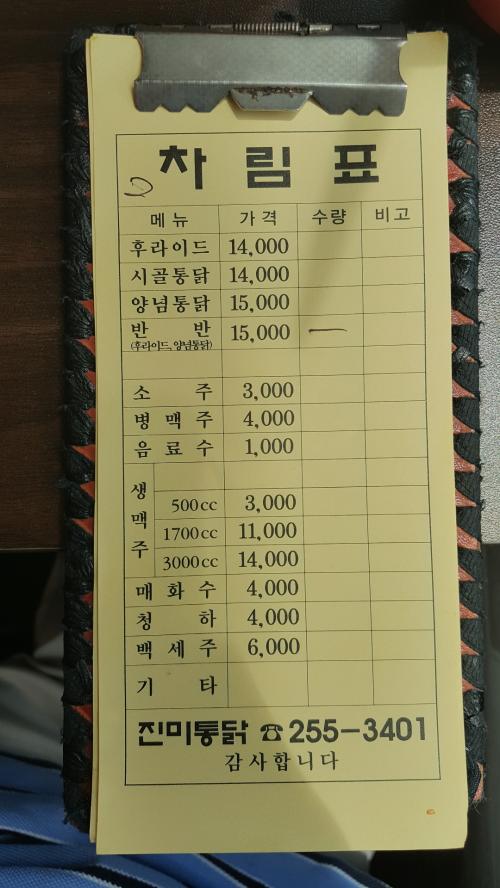 차림표
메뉴 가격 수량 비고
후라이드 14,000
시골통닭 14,000
양념통닭 15,000
반 반 15,000
(후라이드, 양념통닭)
소 주 3,000
병 맥 주 4,000
음 료 수 1,000
생맥주
500cc 3,000
1700cc 11,000
3000cc 14,000
매 화 수 4,000
청 하 4,000
백 세 주 6,000
기 타
진미통닭 ☎ 255-3401
감사합니다